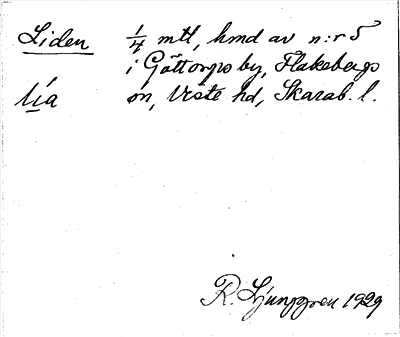 Liden 1/4 mtl, hmd av n:r 5
i Göttorps by, Flakebergs
lía sn, Viste hd, Skarab. l.
R. Ljunggren 1929